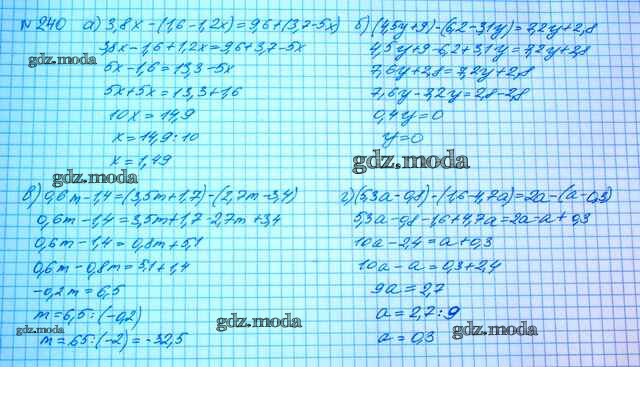 № 240 а) 3,8x - (1,6 - 1,2x) = 9,6 + (3,7 - 5x)
3,8x - 1,6 + 1,2x = 9,6 + 3,7 - 5x
5x - 1,6 = 13,3 - 5x
5x + 5x = 13,3 + 1,6
10x = 14,9
x = 14,9 : 10
x = 1,49
б) (4,5y + 9) - (6,2 - 3,1y) = 7,2y + 2,8
4,5y + 9 - 6,2 + 3,1y = 7,2y + 2,8
7,6y + 2,8 = 7,2y + 2,8
7,6y - 7,2y = 2,8 - 2,8
0,4y = 0
y = 0
в) 0,6m - 1,4 = (3,5m + 1,7) - (2,7m - 3,4)
0,6m - 1,4 = 3,5m + 1,7 - 2,7m + 3,4
0,6m - 1,4 = 0,8m + 5,1
0,6m - 0,8m = 5,1 + 1,4
-0,2m = 6,5
m = 6,5 : (-0,2)
m = 65 : (-2) = -32,5
г) (5,3a - 0,8) - (1,6 - 4,7a) = 2a - (a - 0,3)
5,3a - 0,8 - 1,6 + 4,7a = 2a - a + 0,3
10a - 2,4 = a + 0,3
10a - a = 0,3 + 2,4
9a = 2,7
a = 2,7 : 9
a = 0,3
gdz.moda
gdz.moda
gdz.moda
gdz.moda
gdz.moda
gdz.moda